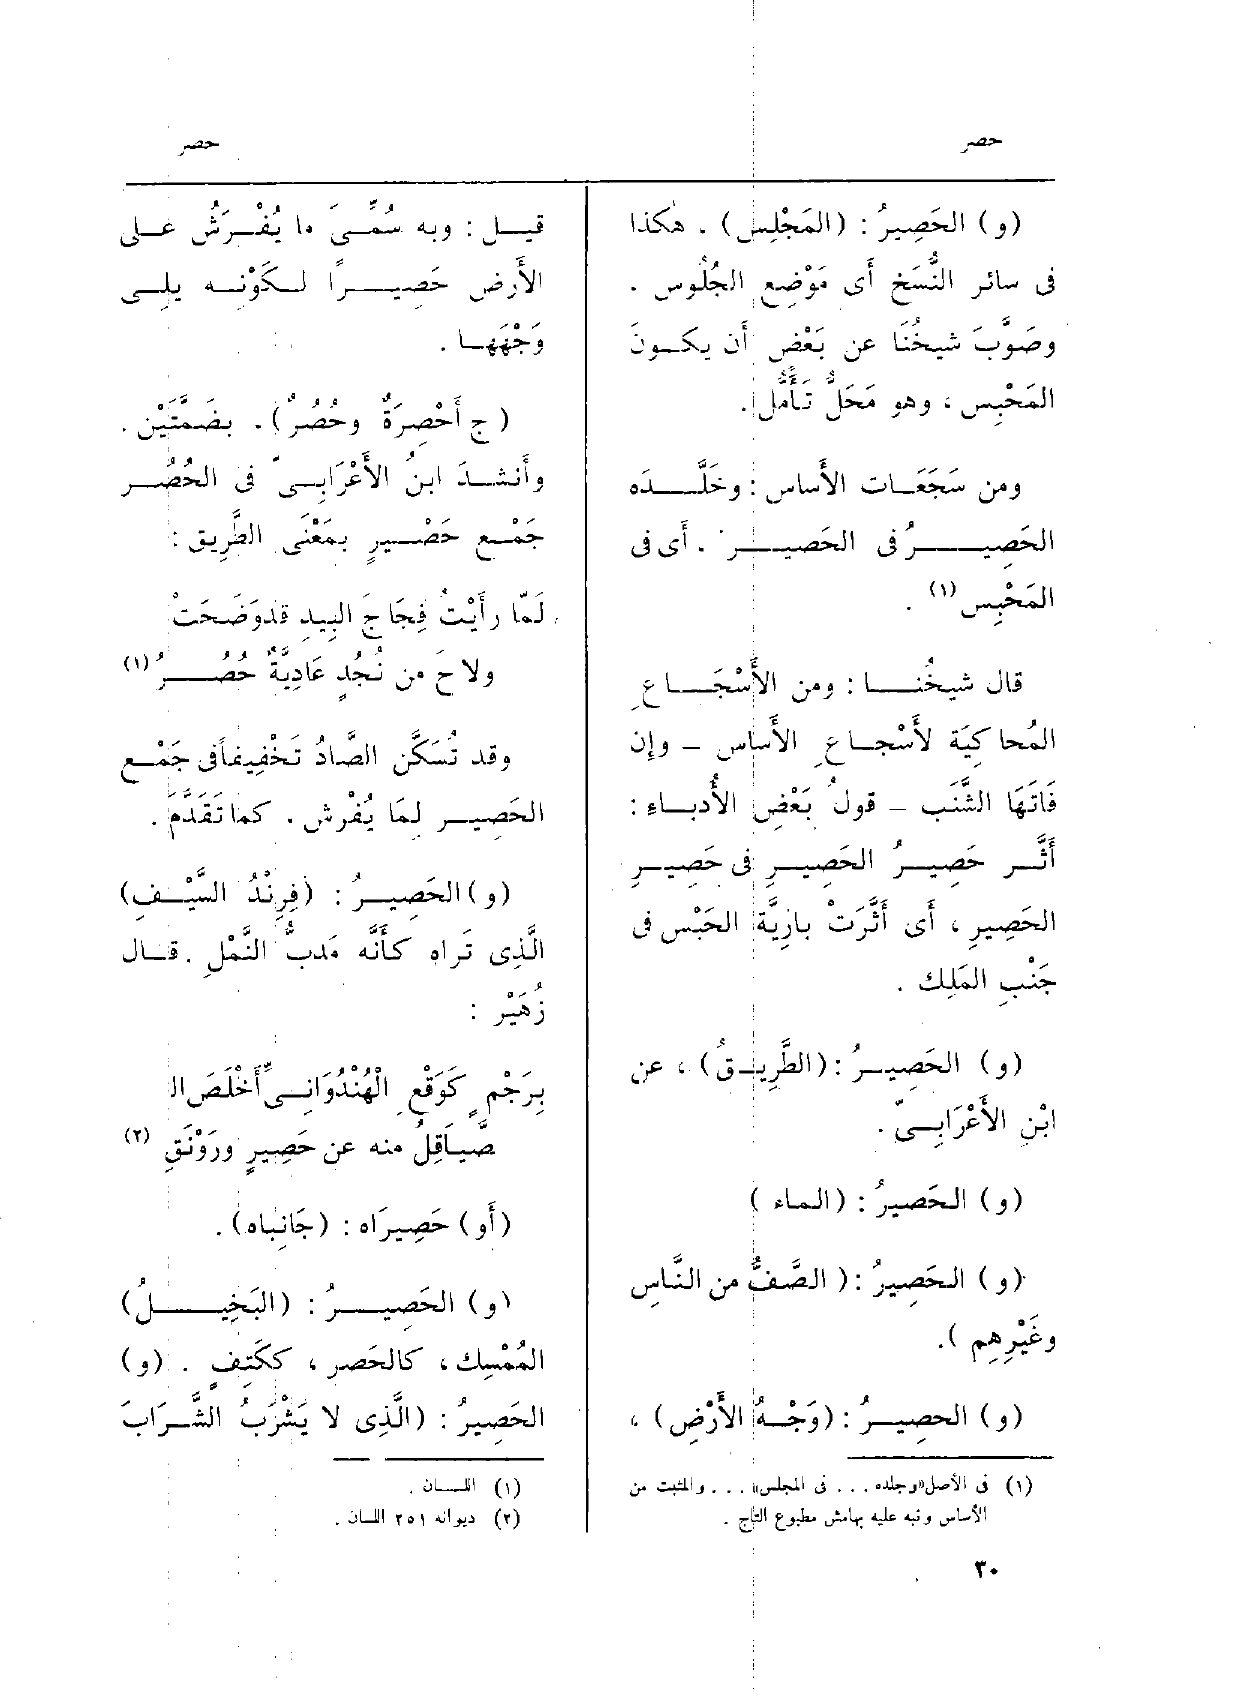 حصر
حصر
(و) الحَصِيرُ : (المَجْلِس) . هكذا
فى سائر النُّسَخ أى مَوْضِع الجُلُوس .
وصَوَّبَ شيخُنَا عن بَعْض أَن يكونَ
المَحْبِس ، وهو مَحَلُّ تَأَمُّل .
ومن سَجَعَات الأَساس : وخَلَّده
الحَصِيرُ فى الحَصِير . أى فى
المَحْبِس (١) .
قال شيخُنا : ومن الأَسْجَاعِ
المُحاكِيَة لأَسْجاعِ الأَساس – وإِن
فَاتَهَا الشَّنَب – قولُ بَعْضِ الأُدباء :
أَثَّر حَصِيرُ الحَصِيرِ فى حَصِيرِ
الحَصِيرِ ، أى أَثَّرَتْ بارِيَّة الحَبْس فى
جَنْبِ المَلِك .
(و) الحَصِيرُ : (الطَّرِيقُ) ، عن
ابْنِ الأَعْرَابِىّ .
(و) الحَصِيرُ : (الماء )
(و) الحَصِيرُ : ( الصَّفُّ من النَّاسِ
وغَيْرِهِم ).
(و) الحصِيرُ : (وَجْهُ الأَرْضِ) ،
(١) فى الأصل «وجلده ... فى المجلس» ... والمثبت من
الأساس ونبه عليه بهامش مطبوع التاج .
قيل : وبه سُمِّىَ ما يُفْرَشُ على
الأَرض حَصِيرًا لكَوْنِه يلِى
وَجْهَها .
( ج أَحْصِرَةٌ وحُصُرٌ ) . بضَمَّتَيْن .
وأَنشدَ ابنُ الأَعْرَابِىّ فى الحُصُر
جَمْع حَصْيرٍ بمَعْنَى الطَّرِيق :
لَمّا رأَيْتُ فِجَاجَ البِيد قدوَضَحَتْ
ولاحَ من نُجُدٍ عَادِيَّةٌ حُصُرُ (١)
وقد تُسَكَّن الصَّادُ تَخْفِيفاً فى جَمْع
الحَصِير لمَا يُفْرش . كما تَقَدَّم .
(و) الحَصِيرُ : (فِرِنْدُ السَّيْفِ)
الَّذِى تَراه كأَنَّه مَدبُّ النَّمْلِ . قال
زُهَيْر :
بِرَجْمٍ كَوَقْعِ الْهُنْدُوَانِىِّ أَخْلَصَ الـ
صَّيَاقِلُ منه عن حَصِيرٍ ورَوْنَقِ (٢)
(أو) حَصِيرَاه : (جَانِباه) .
(و) الحَصِيرُ : (البَخِيلُ)
المُمْسِك ، كالحَصر ، ككَتِفٍ . (و)
الحَصِيرُ : (الَّذِى لا يَشْرَبُ الشَّرَابَ
(١) اللسان .
(٢) ديوانه ٢٥١ اللسان .
٣٠